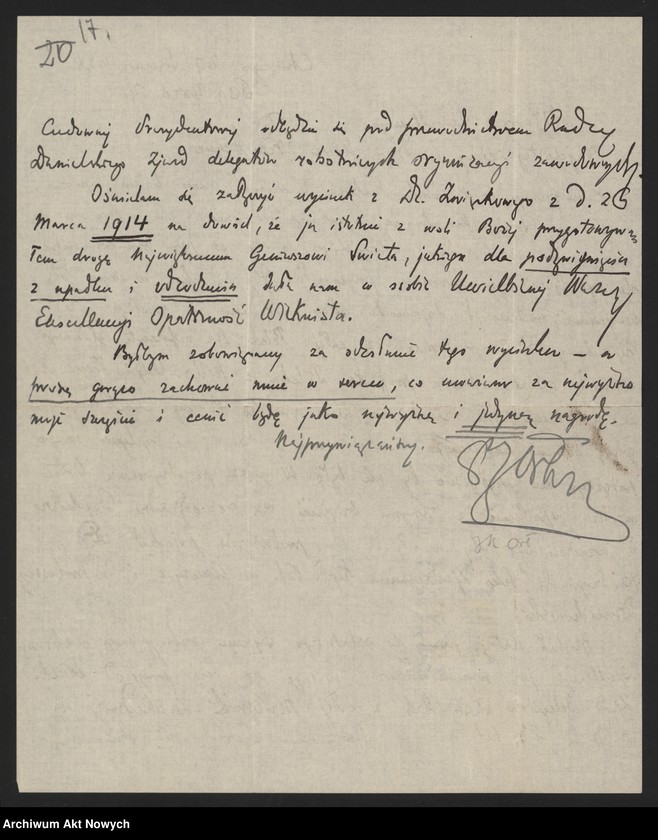 20 17.
Cudownej Prezydentowej odbędzie się pod przewodnictwem Radcy
Danielskiego Zjazd delegatów robotniczych organizacji zawodowych.
Ośmielam się załączyć wycinek z Dz. Związkowego z d. 26
Marca 1914 na dowód, że ja istotnie z woli Bożej przygotowywałem
Tam drogę Największemu Geniuszowi Świata, jakiego dla podźwignięcia
z upadku i odrodzenia dała nam w osobie Uwielbianej Waszej
Ekscellencyi Opatrzność Wiekuista.
Byłbym zobowiązany za odesłanie tego wycinka – a
proszę gorąco zachować mnie w sercu, co uważam za najwyższe
moje szczęście i cenić będę jako najwyższą i jedyną nagrodę.
Najprzywiązańszy.
JK Orł
Archiwum Akt Nowych